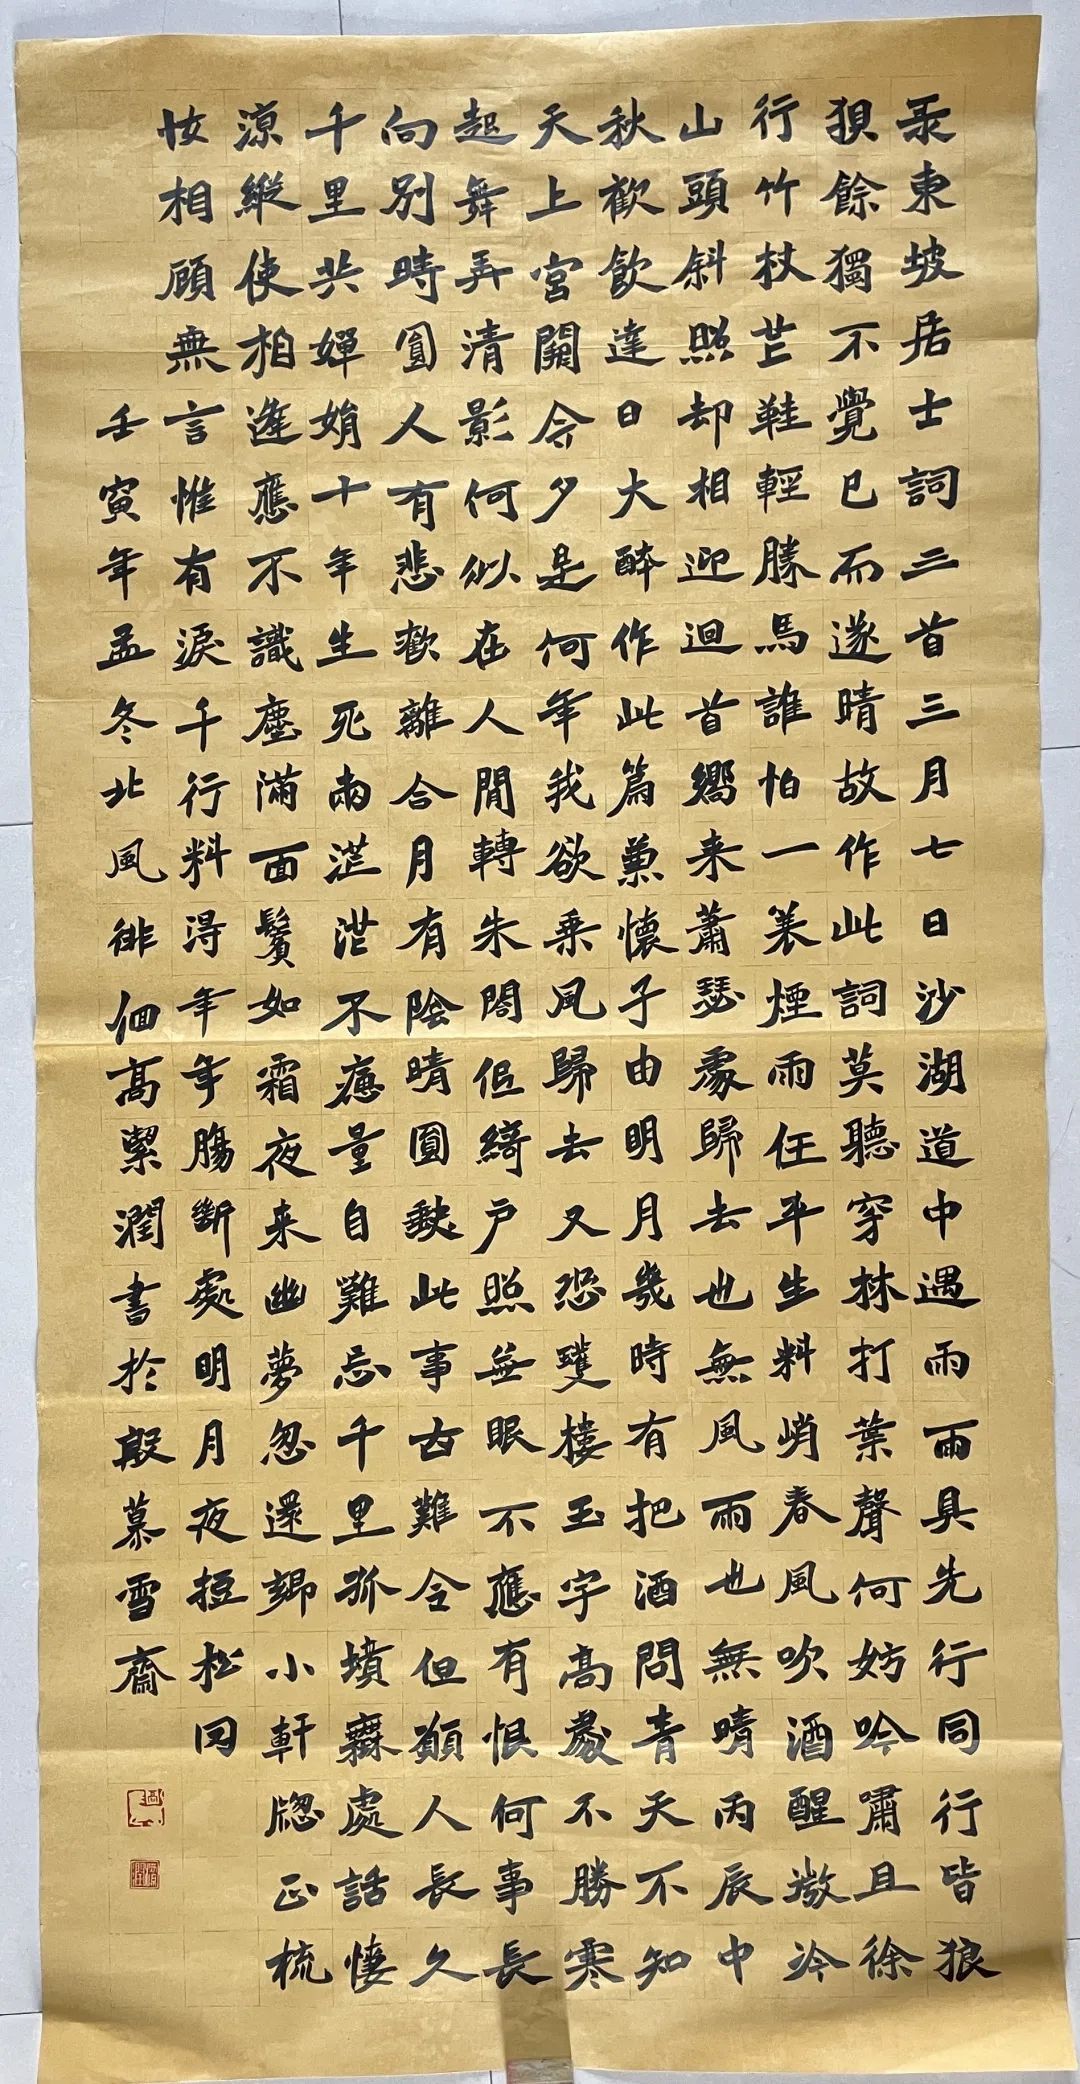 录東坡居士詞三首三月七日沙湖道中遇雨雨具先行同行皆狼
狽餘獨不覺已而遂晴故作此詞莫聽穿林打葉聲何妨吟嘯且徐
行竹杖芒鞋輕勝馬誰怕一蓑煙雨任平生料峭春風吹酒醒微冷
山頭斜照却相迎迴首嚮来蕭瑟處歸去也無風雨也無晴丙辰中
秋歡飲達日大醉作此篇兼懷子由明月幾時有把酒問青天不知
天上宮闕今夕是何年我欲乘風歸去又恐瓊樓玉宇高處不勝寒
起舞弄清影何似在人間轉朱閣低綺戶照無眠不應有恨何事長
向別時圓人有悲歡離合月有陰晴圓缺此事古難全但願人長久
千里共嬋娟十年生死兩茫茫不思量自難忘千里孤墳無處話悽
涼縱使相逢應不識塵滿面鬢如霜夜来幽夢忽還鄉小軒窓正梳
妝相顧無言惟有淚千行料得年年腸斷處明月夜短松岡
壬寅年孟冬北風徘徊高絜潤書於殷慕雪齋